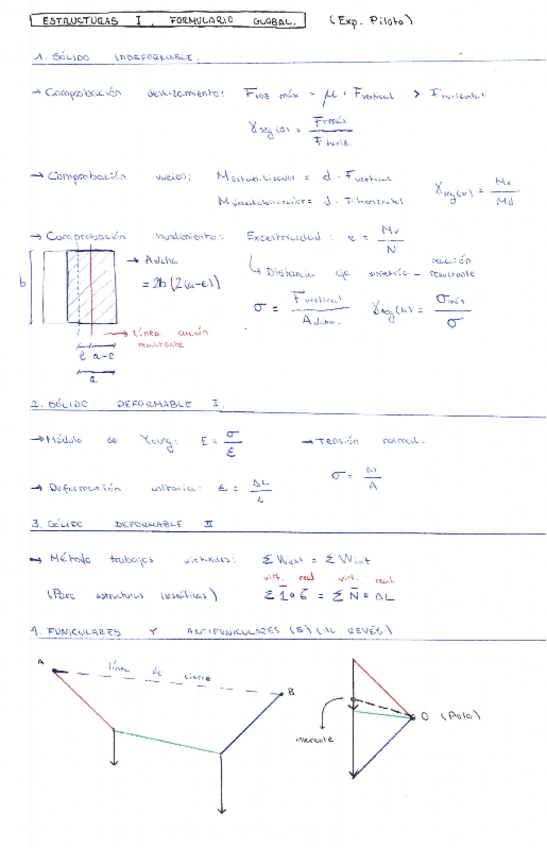 ESTRUCTURAS I. FORMULARIO GLOBAL. (Exp. Piloto)
1. SÓLIDO INDEFORMABLE.
→ Comprobación deslizamiento: Froz máx = μ · Fvertical > Fhorizontal
γseg(d) = Frmáx / Fhoriz.
→ Comprobación vuelco: Mestabilizador = d · Fvertical
Mdesestabilizador = d · Fhorizontal
γseg(v) = Me / Md
→ Comprobación hundimiento: Excentricidad: e = Mv / N
↳ Distancia eje simetría - reacción resultante
b
→ Adcha
= 2b (2(a-e))
σ = Fvertical / Adcha. γseg(h) = σmáx / σ
→ Línea acción resultante
e a-e
a
2. SÓLIDO DEFORMABLE I.
→ Módulo de Young: E = σ / ε
→ Tensión normal:
σ = N / A
→ Deformación unitaria: ε = ΔL / L
3. SÓLIDO DEFORMABLE II
→ Método trabajos virtuales: ΣWext = ΣWint
virt. real virt. real
(Para estructuras isostáticas) Σ1̄ · δ = ΣN̄ · ΔL
4. FUNICULARES Y ANTIFUNICULARES (S) (AL REVÉS)
A
línea de cierre
B
O (Polo)